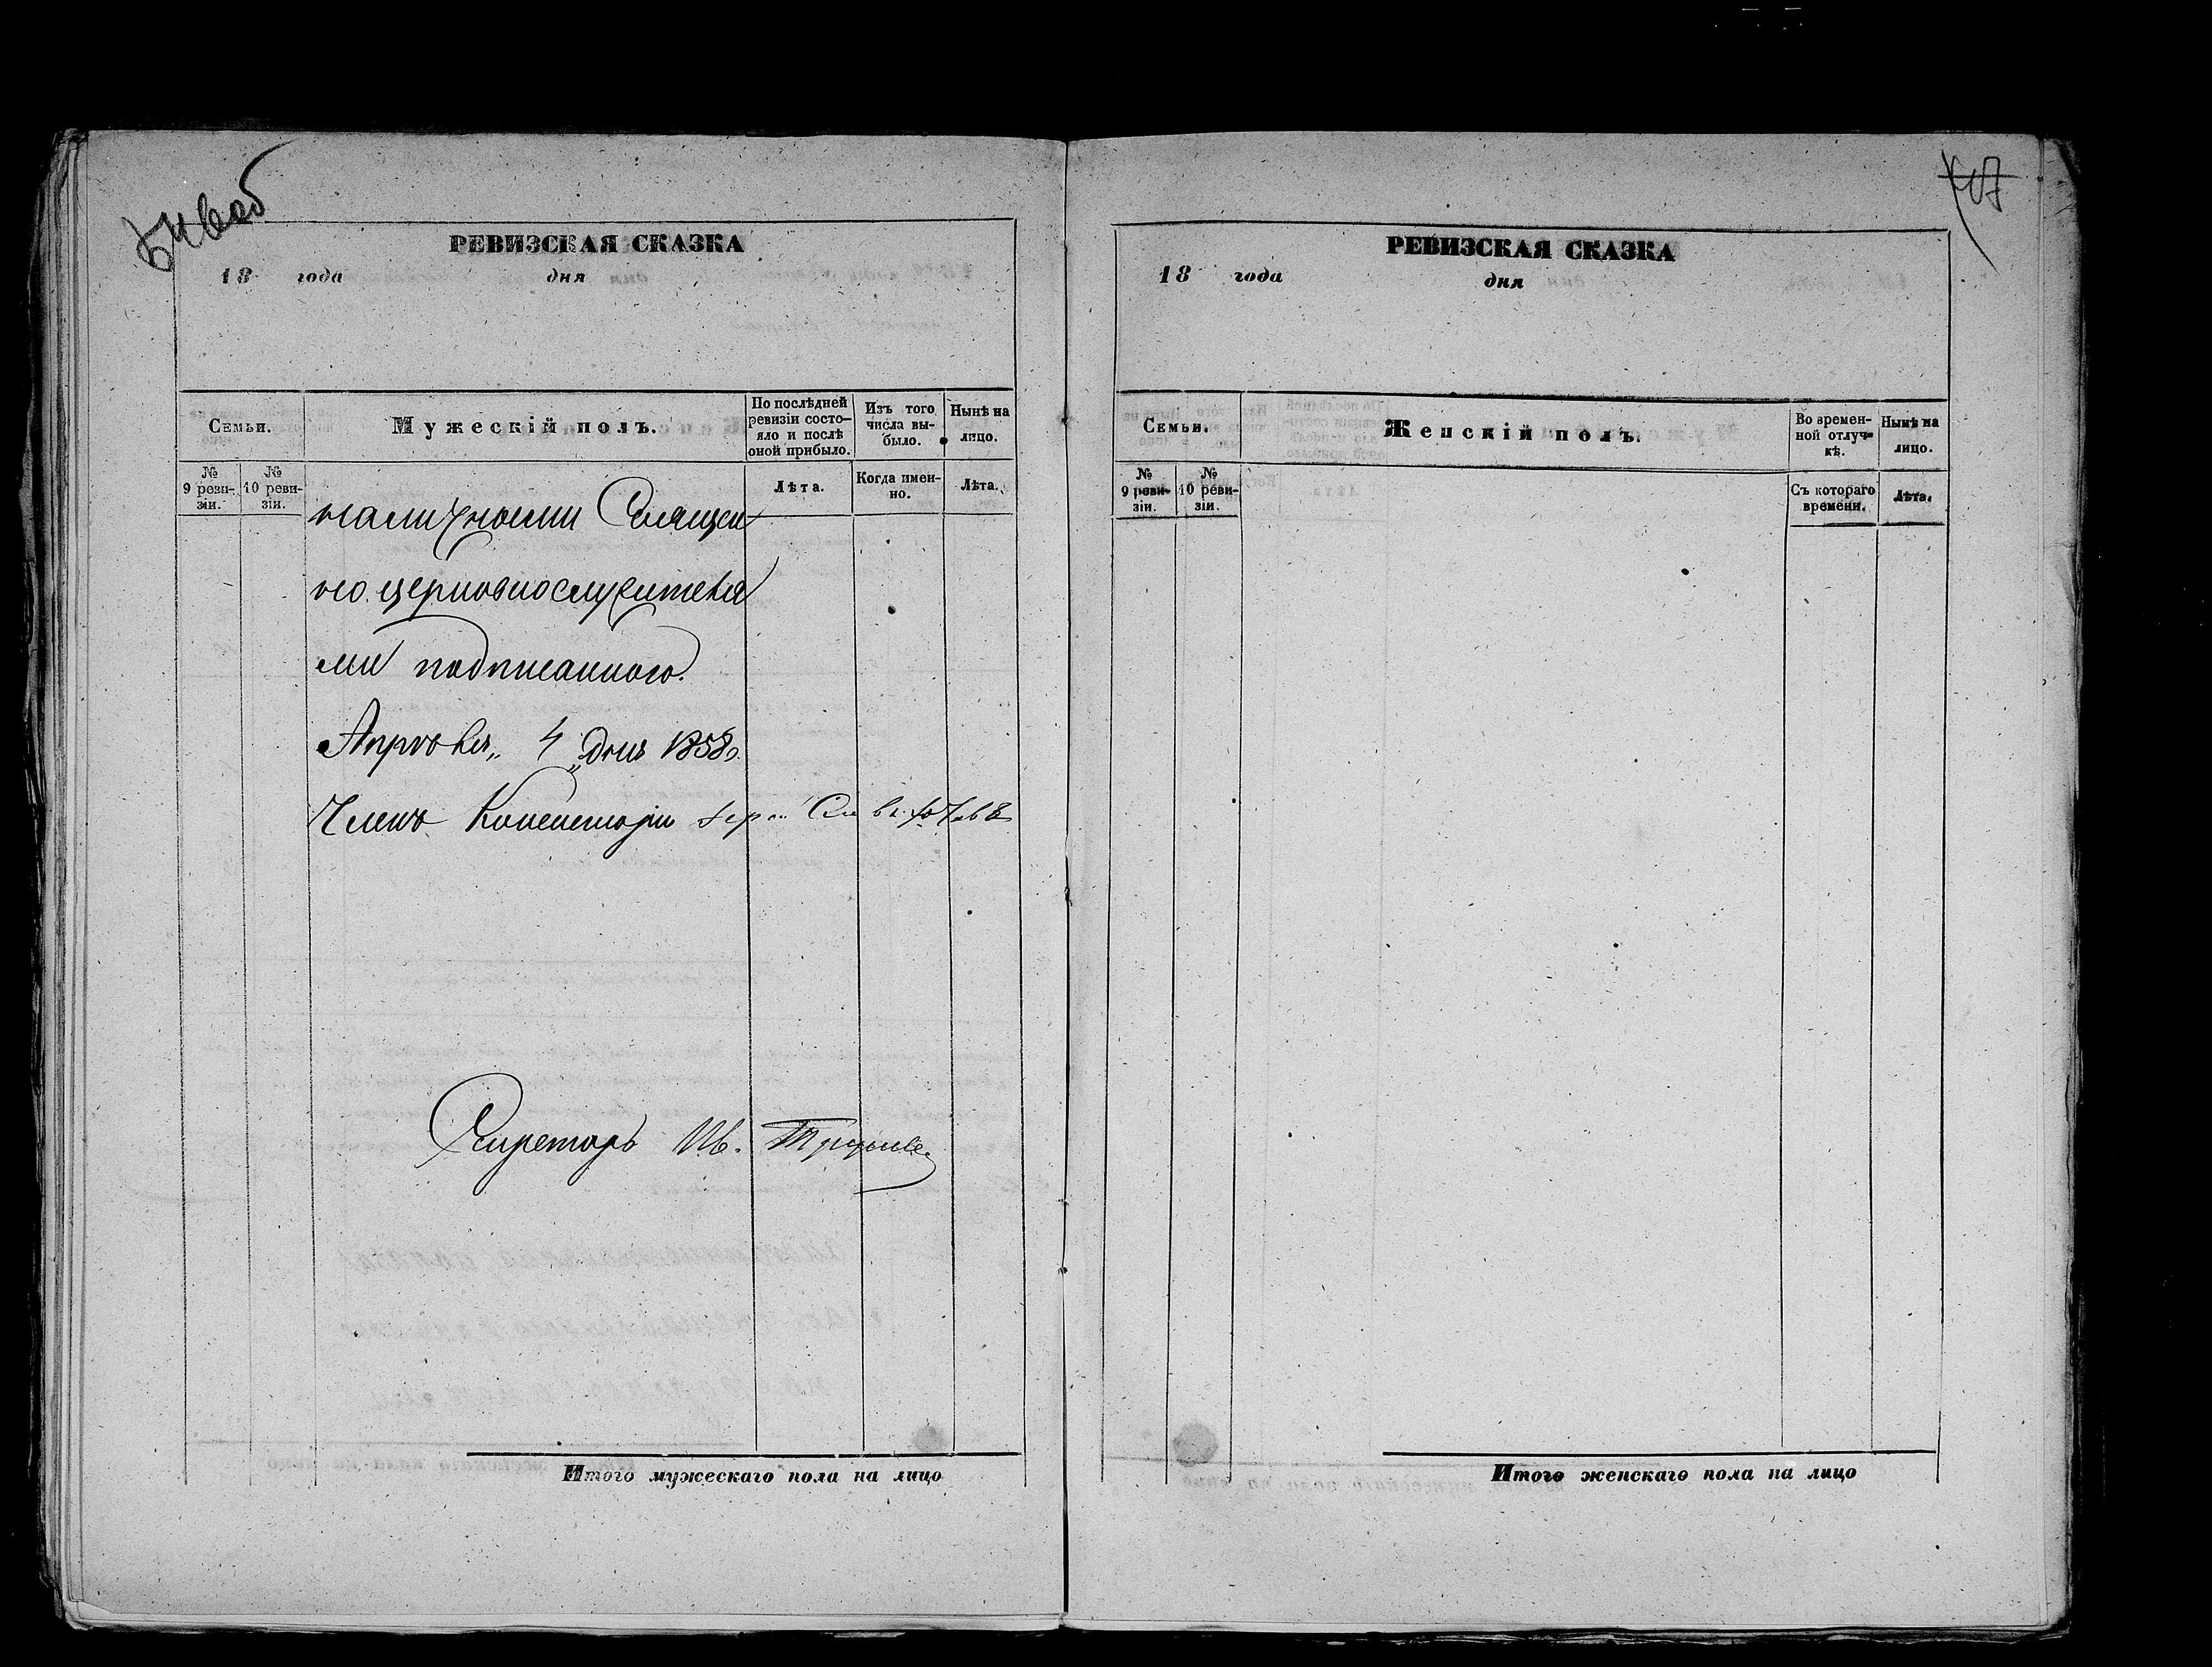 РЕВИЗСКАЯ СКАЗКА
18 года дня
Семьи.
Мужескій полъ.
По послѣдней ревизіи состо-
яло и послѣ
оной прибыло.
Изъ того
числа вы-
было.
Нынѣ на
лицо.
№
9 реви-
зіи.
№
10 реви-
зіи.
Лѣта.
Когда имен-
но.
Лѣта.
наличными Священ
но. церковнослужителя
ми подписанного.
Апрѣля „ 4 „ дня 1858 г.
Членъ Консисторіи
Секретарь Ив.
Итого мужескаго пола на лицо
РЕВИЗСКАЯ СКАЗКА
18 года дня
Семьи.
Женскій полъ.
Во времен-
ной отлуч-
кѣ.
Нынѣ на
лицо.
№
9 реви-
зіи.
№
10 реви-
зіи.
Съ котораго
времени.
Лѣта.
Итого женскаго пола на лицо